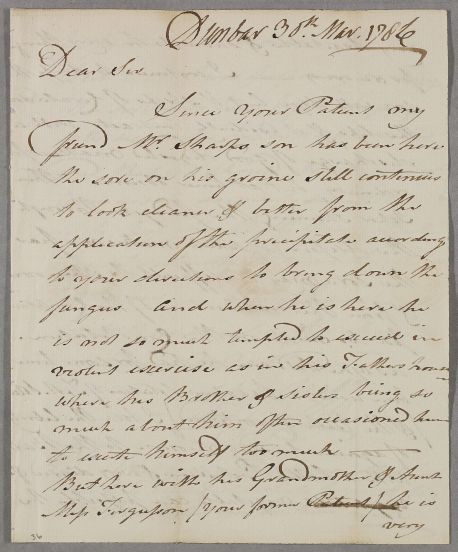 Dunbar 30th Mar. 1786
Dear Sir
Since your Patient my
friend Mr. Sharps son has been here
the sore on his groine still continues
to look cleaner & better from the
application of the precipitate according
to your directions to bring down the
fungus and when he is here he
is not so much tempted to exceed in
violent exercise as in his Fathers house
where his Brother & Sisters being so
much about him often occasioned him
to exert himself too much ———
But here with his Grandmother & Aunt
Miss Fergusson / your former Patient / he is
very
36